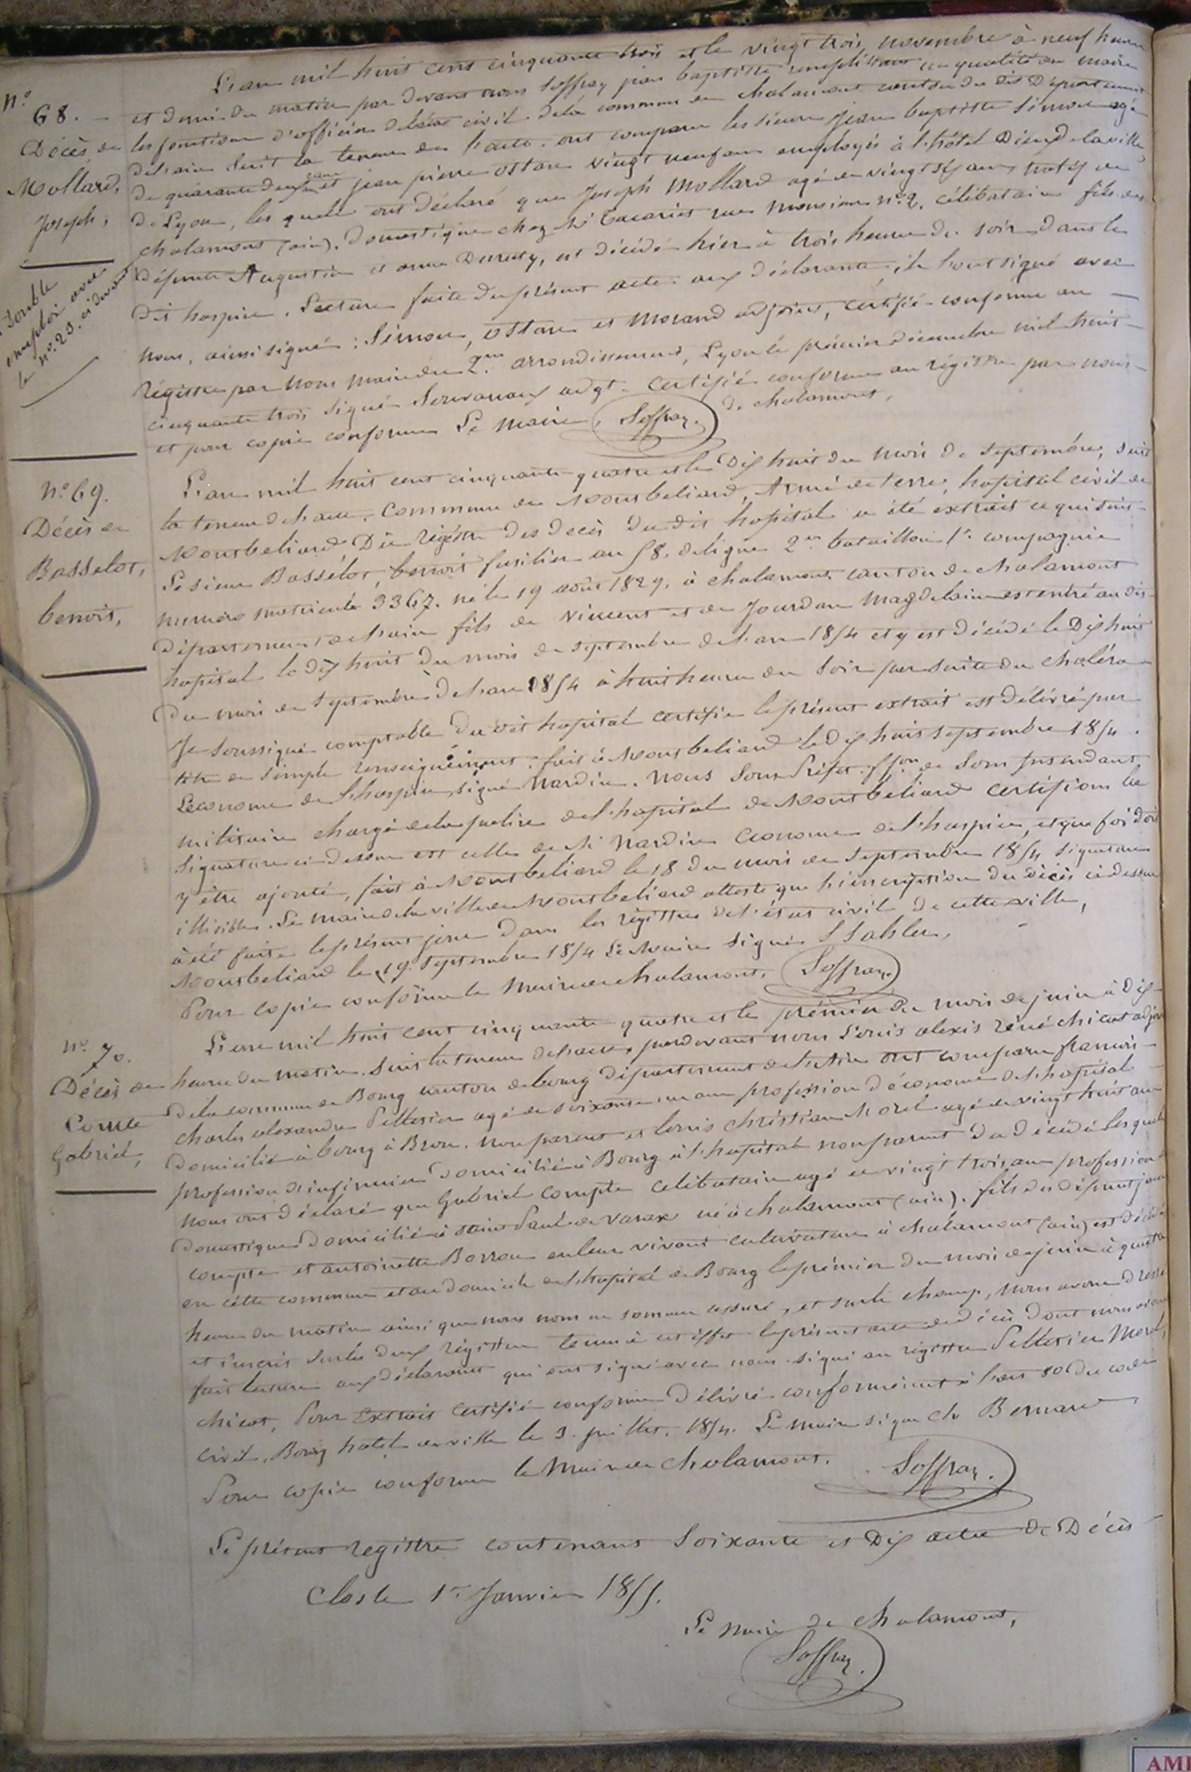 N°
68.
Décès de
Mollard,
Joseph,
Double
emploi avec
le n° 23. ci devant
L'an mil huit cent cinquante trois et le vingt trois novembre à neuf heures
et demi du matin par devant nous Soffray jean baptiste remplissant en qualité de maire
les fonctions d'officier de l'état civil de la commune de chalamont canton du dit Département
de l'ain suit la teneur de l'acte. ont comparu les sieurs jean baptiste Simon agé
de quarante deux ans et jean pierre ostan vingt neuf ans employés à l'hôtel Dieu de la ville
de Lyon, les quels ont déclaré que Joseph Mollard agé de vingt six ans natif de
chalamont (ain), domestique chez Mr rue n° 2, célibataire fils des
défunts Augustin et anne Duruty, est décédé hier à trois heures du soir dans le
dit hospice. Lecture faite du présent acte aux déclarants, ils l'ont signé avec
nous, ainsi signé : Simon, ostan et Morand adjoint, certifié conforme au
régistre par nous maire du 2me arrondissement, Lyon le prémier décembre mil huit
cinquante trois signé adgt. certifié conforme au régistre par nous
et pour copie conforme Le Maire de chalamont,
Soffray.
N° 69.
Décès de
Basselot,
benoit,
L'an mil huit cent cinquante quatre et le Dix huit du mois de septembre, suit
la teneur de l'acte. Commune de Montbeliard, Armée de terre, hopital civil de
Montbeliard, Du régistre des décès du dit hopital a été extrait ce qui suit
Le sieur Bassélot, benoit fusilier au 58. de ligne 2me bataillon 1re compagnie
numéro matricule 3367. né le 19 août 1829. à chalamont canton de chalamont
département de l'ain fils de vincent et de Jourdan Magdelaine est entré au dit
hopital le dix huit du mois de septembre de l'an 1854 et y est décédé le Dix huit
du mois de septembre de l'an 1854 à huit heures du soir par suite du choléra
Je soussigné comptable du dit hopital certifie le présent extrait est délivré par
titre de simple renseignement. fait à Montbeliard le dix huit septembre 1854.
L'économe de l'hospice, signé Nardin. Nous Sous Préfet. ffon. de Sous Intendant
militaire chargé de la police de l'hopital de Montbeliard certifions la
signature ci-dessus est celle de Mr Nardin économe de l'hospice, et que foi doit
y être ajouté, fait à Montbeliard le 18 du mois de septembre 1854 signature
illisible. Le maire de la ville de Montbeliard atteste que l'inscription du décès ci-dessus
à été faite le présent jour dans les régistres de l'état civil de cette ville,
Montbeliard le 19 septembre 1854 Le Maire signé
Pour copie conforme le Maire de chalamont, Soffray.
N° 70.
Décès de
Comte
Gabriel,
L'an mil huit cent cinquante quatre et le prémier du mois de juin à dix
heures du matin. Suit la teneur de l'acte, pardevant nous Louis alexis réné chicot adjoint
de la commune de Bourg canton de bourg département de l'Ain ont comparu francois
charles alexandre Pelletier agé de soixante un ans profession d'économe de l'hopital
domicilié à bourg à Brou. non parent et Louis christian Morel agé de vingt huit ans
profession d'infirmier domicilié à Bourg à l'hopital non parent du décédé Lesquels
nous ont déclaré que Gabriel compte célibataire agé de vingt trois ans profession
domestique domicilié à saint Paul de varax né à chalamont (ain). fils des défunts jean
compte et antoinette Borron en leur vivant cultivateurs à chalamont (ain) est décédé
en cette commune et au domicile de l'hopital de Bourg le prémier du mois de juin à quatre
heures du matin ainsi que nous nous en sommes assuré, et sur le champ, nous avons dressé
et inscrit sur les deux régistres tenus à cet effet le présent acte de décès dont nous avons
fait lecture aux déclarants qui ont signé avec nous. signé au régistre Pelletier Morel,
chicot, Pour Extrait certifié conforme délivré conformément à l'art 80 du code
civil. Bourg hotel de ville le 3. juillet. 1854. Le maire signé ch Bernard
Pour copie conforme le Maire de chalamont. Soffray.
Le présent registre contenant Soixante et Dix actes de Décès
Clos le 1er Janvier 1855.
Le maire de chalamont,
Soffray.
AMI